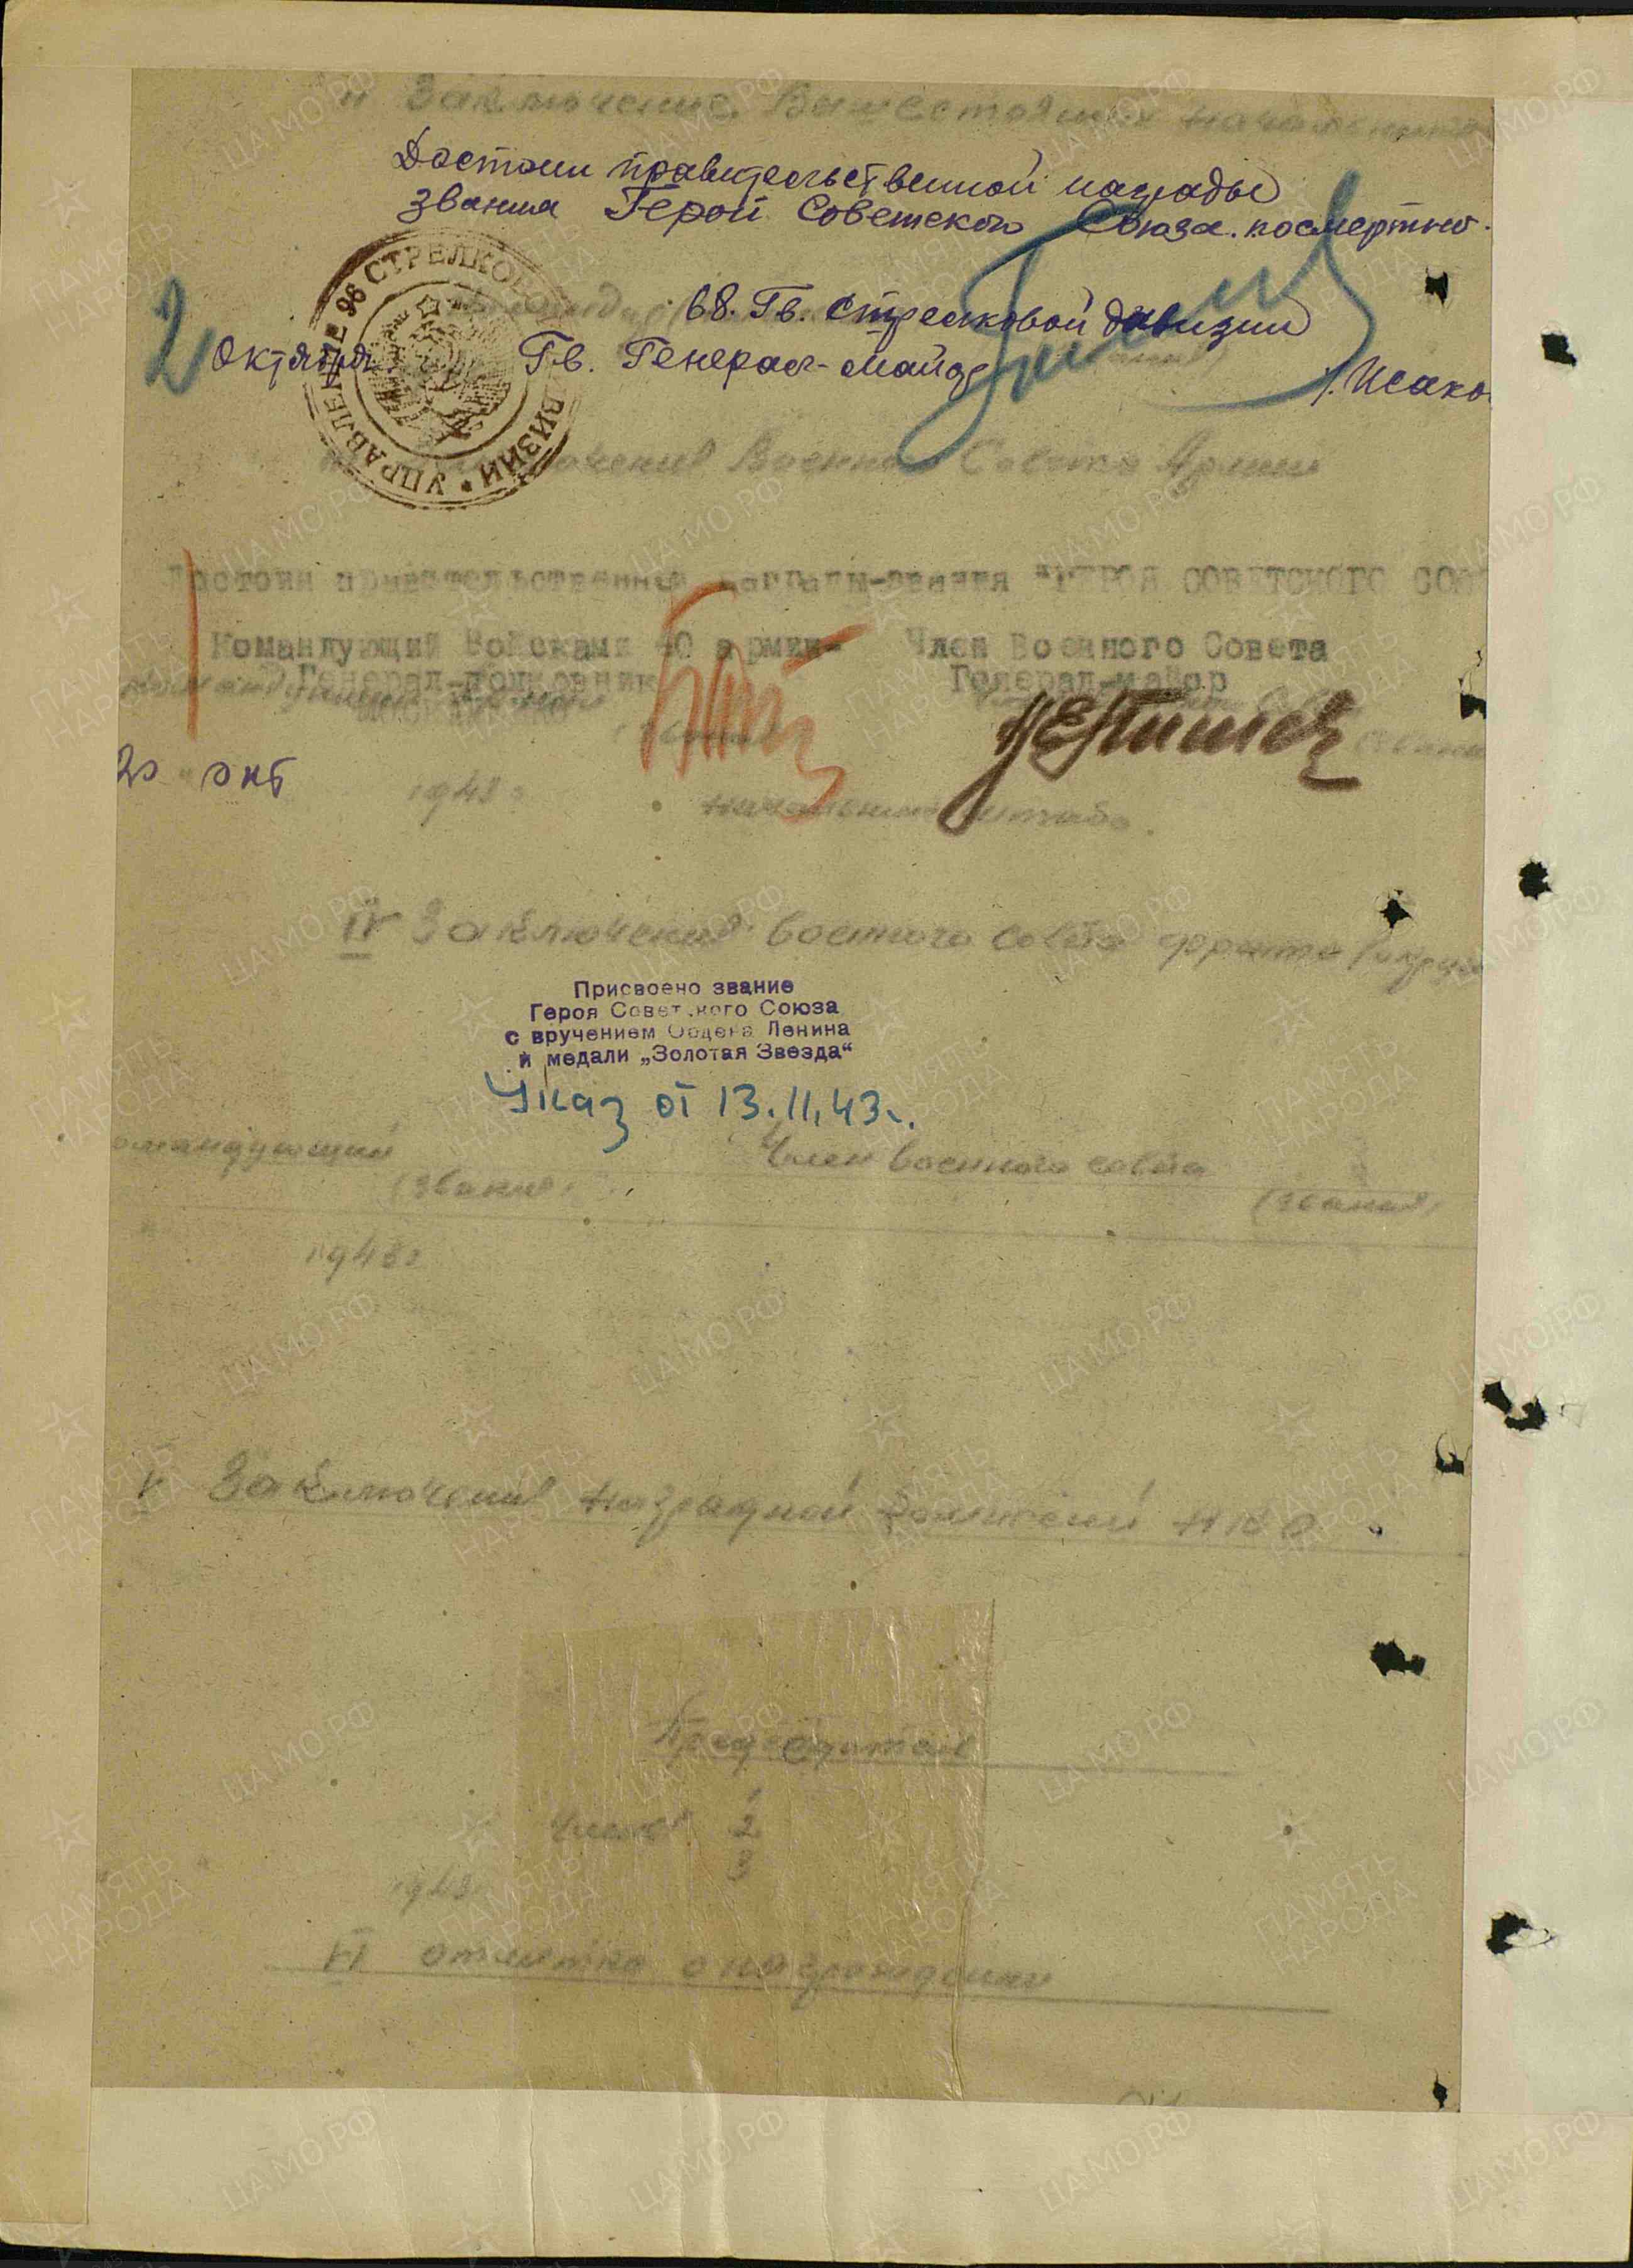 II Заключение Вышестоящих начальников
Достоин правительственной награды
звания Герой Советского Союза. посмертно.
УПРАВЛЕНИЕ 96 СТРЕЛКОВОЙ ДИВИЗИИ
68. Гв. Стрелковой дивизии
2 Октября Гв. Генерал-майор Исако
Военного Совета Армии
Достоин правительственной награды-звания "ГЕРОЯ СОВЕТСКОГО СОЮ
Командующий Войсками 40 армии- Член Военного Совета
Генерал-полковник Генерал-майор
20 окт 1943г
Начальник штаба.
IV Заключение военного совета фронта (округа
Присвоено звание
Героя Советского Союза
с вручением Ордена Ленина
и медали „Золотая Звезда“
Указ от 13.11.43г.
омандующий Член военного совета
(звание) (звание)
1943г
V Заключение наградной комиссии НКО
Председатель
Члены 1
2
3
1943
VI отметка о награждении